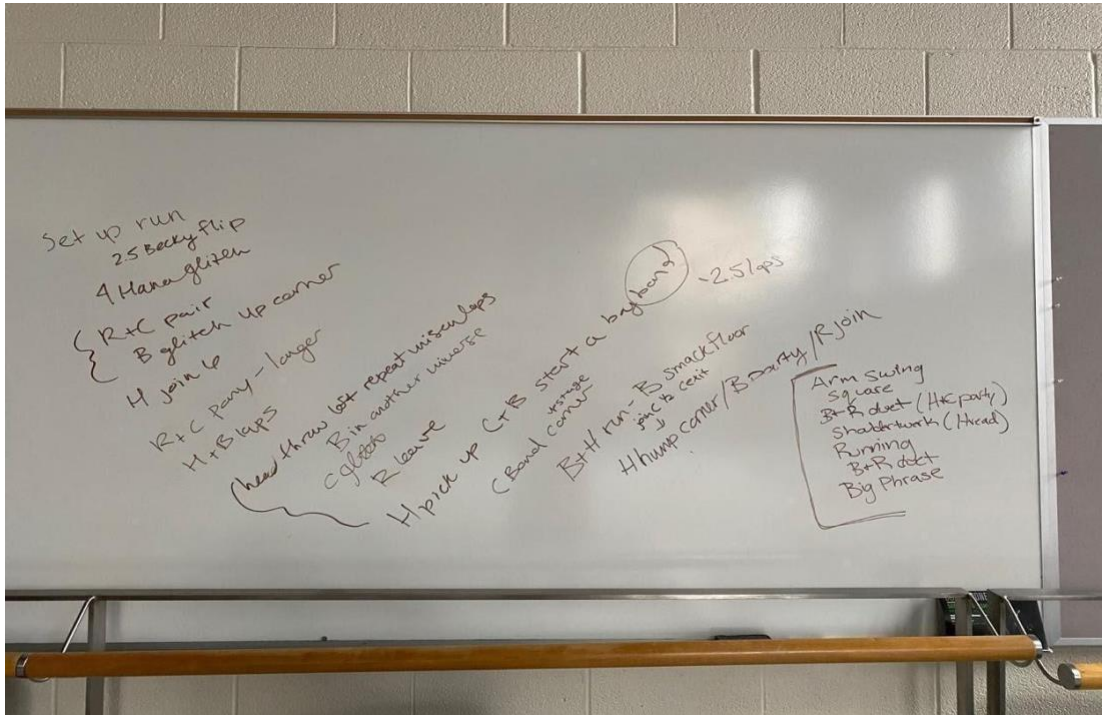 Set up run
2.5 Becky flip
4 Hana glitch
R+C pair
B glitch up corner
H join
R+C Party - longer
H+B laps
head throw lost repeat misc laps
B in another universe
C
R leave
H pick up C+B start a big band ~2.5 laps
C Band corner
B+H run - B smack floor
join C to exit
H hump corner / B party / R join
Arm swing
square
B+R duet (H+C party)
(H read)
Running
B+R duet
Big Phrase